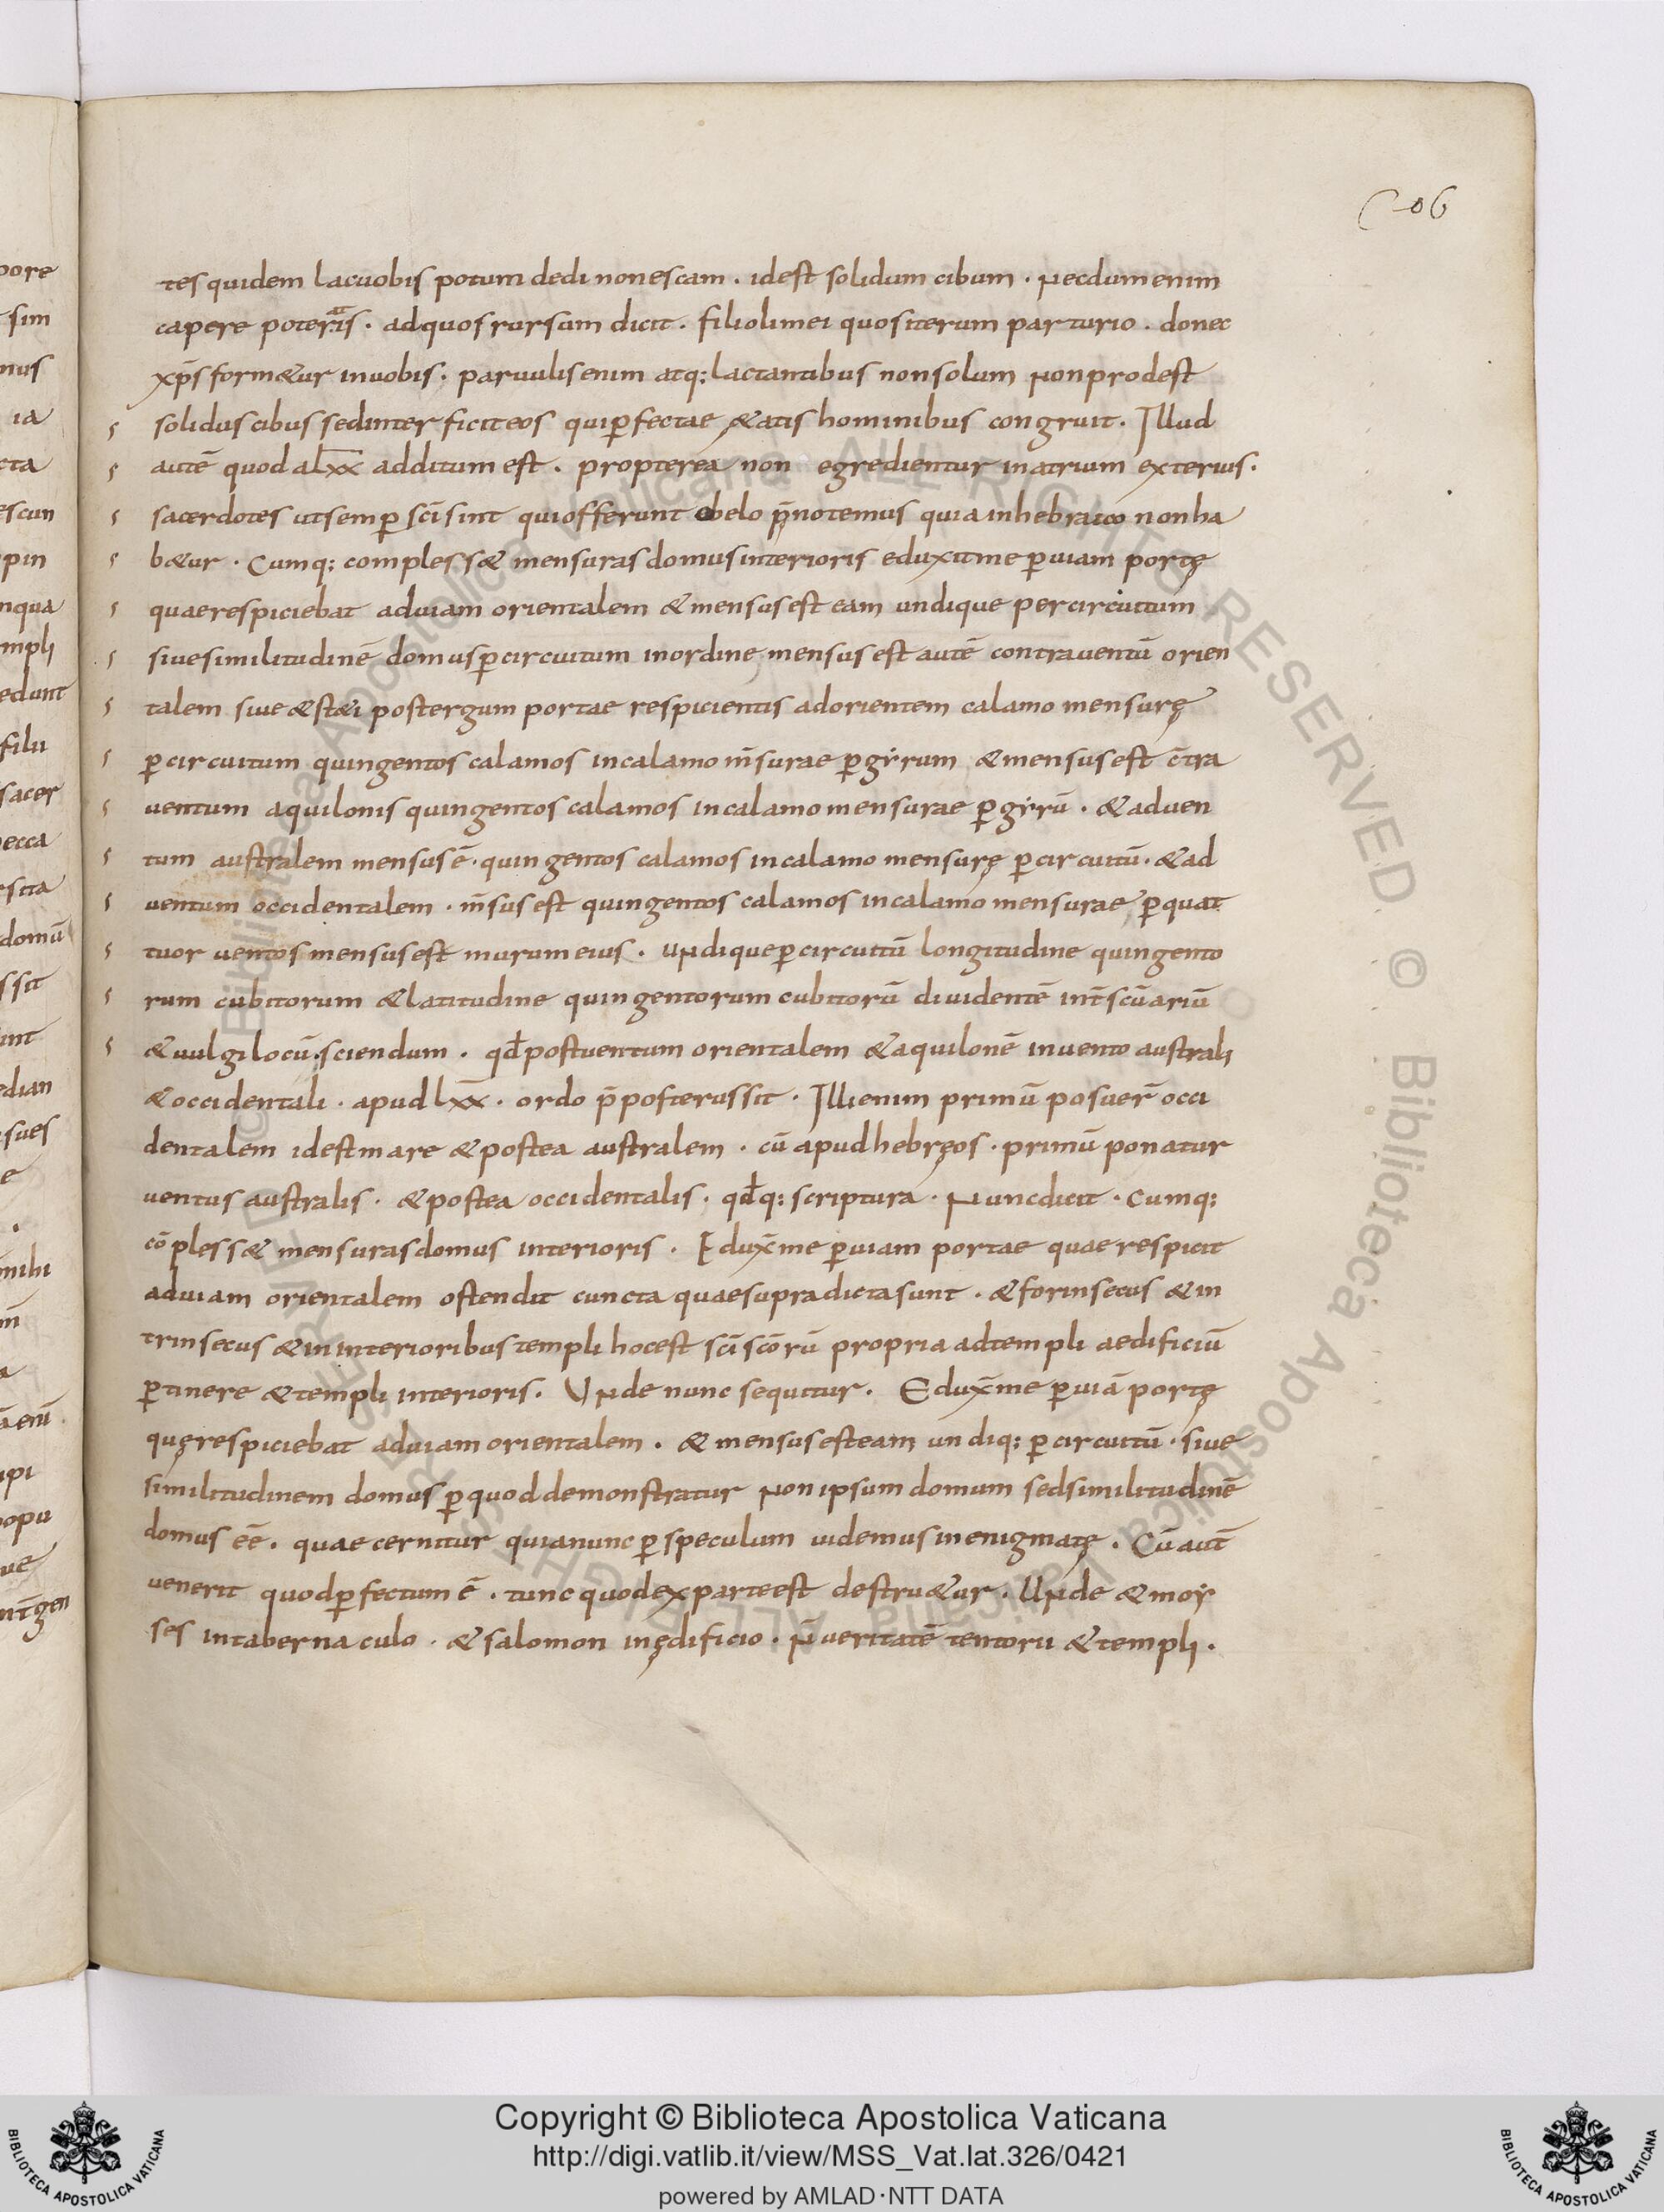 206
tes quidem lac uobis potum dedi non escam · id est solidum cibum · Necdum enim
capere poteratis · ad quos rursum dicit · filioli mei quos iterum parturio · donec
xp̄s form&ur in uobis · paruulis enim atq; lactantibus non solum Non prodest
solidus cibus sed interficit eos qui ꝑfectae &atis hominibus congruit · Illud
autē quod a lxx additum est · propterea non egredientur in atrium exterius ·
sacerdotes ut semꝑ sc̄i sint qui offerunt obelo p̄notemus quia in hebraico non ha
b&ur · Cumq; compless& mensuras domus interioris eduxit me ꝑ uiam portę
quae respiciebat ad uiam orientalem & mensus est eam undique per circuitum
siue similitudinē domus ꝑ circuitum in ordine mensus est autē contra uentū orien
talem siue &st&i post tergum portae respicientis ad orientem calamo mensurę
ꝑ circuitum quingentos calamos in calamo m̄surae ꝑ gẏrum & mensus est c̄tra
uentum aquilonis quingentos calamos in calamo mensurae ꝑ gẏrū · & ad uen
tum australem mensus ē · quingentos calamos in calamo mensurę ꝑ circuitū · & ad
uentum occidentalem · m̄sus est quingentos calamos in calamo mensurae ꝑ quat
tuor uentos mensus est murum eius · uNdique ꝑ circuitū longitudine quingento
rum cubitorum & latitudine quingentorum cubitorū diuidentē int̄ sc̄uariū
& uulgi locū · sciendum · qđ post uentum orientalem & aquilonē in uento australi
& occidentali · apud lxx · ordo p̄posterus sit · Illi enim primū posuer̄ occi
dentalem id est mare & postea australem · cū apud hebręos · primū ponatur
uentus australis · & postea occidentalis · qđq; scriptura · Nunc dicit · Cumq;
cōpless& mensuras domus interioris · Edux̄ me ꝑ uiam portae quae respicit
ad uiam orientalem ostendit cuncta quae supra dicta sunt · & forinsecus & in
trinsecus & in interioribus templi hoc est sc̄i sc̄orū propria ad templi aedificiū
ꝑtinere & templi interioris · UNde nunc sequitur · Edux̄ me ꝑ uiā portę
quę respiciebat ad uiam orientalem · & mensus est eam undiq; ꝑ circuitū · siue
similitudinem domus ꝑ quod demonstratur Non ipsum domum sed similitudinē
domus ēe · quae cernitur quia nunc ꝑ speculum uidemus in enigmatę · Cū aut̄
uenerit quod ꝑfectum ē · tunc quod ex parte est destru&ur · UNde & moẏ
ses in tabernaculo · & salomon in ędificio · N̄ ueritatē tentorii & templi ·
pore
sim
nus
ia
cta
escun
pin
nqua
mpli
edunt
filii
sacer
pecca
rsita
domū
ssit
int
edian
sues
e
mihi
m̄
a
ā eni
ipi
popu
ue
nt̄ gen
Copyright © Biblioteca Apostolica Vaticana
http://digi.vatlib.it/view/MSS_Vat.lat.326/0421
powered by AMLAD·NTT DATA
BIBLIOTECA APOSTOLICA VATICANA
BIBLIOTECA APOSTOLICA VATICANA
© Biblioteca Apostolica Vaticana ALL RIGHTS RESERVED © Biblioteca Apostolica Vaticana ALL RIGHTS RESERVED